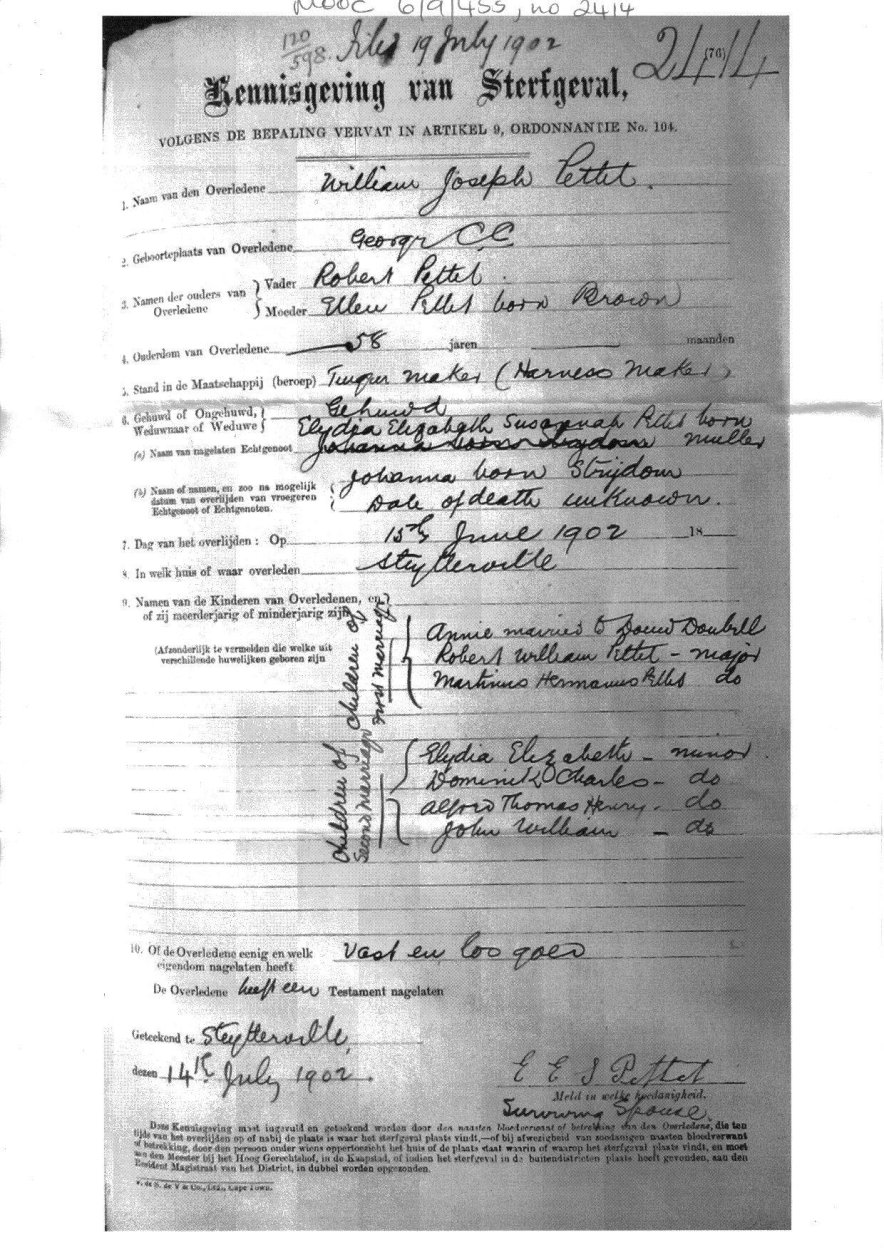 MOOC 6/9/455, no 2414
120
598. Filed 19 July 1902
2414
(76)
Kennisgeving van Sterfgeval,
VOLGENS DE BEPALING VERVAT IN ARTIKEL 9, ORDONNANTIE No. 104.
1. Naam van den Overledene William Joseph Pettet.
2. Geboorteplaats van Overledene George C C
3. Namen der ouders van Overledene } Vader Robert Pettet.
Moeder Ellen Pettet born Brown
4. Ouderdom van Overledene 58 jaren maanden
5. Stand in de Maatschappij (beroep) maker (Harness Maker)
6. Gehuwd of Ongehuwd, Weduwnaar of Weduwe } Gehuwd
Elydia Elizabeth Susannah Pettet born
(a) Naam van nagelaten Echtgenoot Johanna born Strydom muller
(b) Naam of namen, en zoo na mogelijk datum van overlijden van vroegeren Echtgenoot of Echtgenoten. { Johanna born Strijdom
Date of death unknown.
7. Dag van het overlijden: Op 15th June 1902 18
8. In welk huis of waar overleden Steytlerville
9. Namen van de Kinderen van Overledenen, en of zij meerderjarig of minderjarig zijn.
(Afzonderlijk te vermelden die welke uit verschillende huwelijken geboren zijn
Children of first marriage
Annie married to Douw Doubell
Robert William Pettet - major
Martinus Hermanus Pettet do
Children of Second marriage
Elydia Elizabeth - minor
Dominick Charles - do
Alford Thomas Henry - do
John William - do
10. Of de Overledene eenig en welk eigendom nagelaten heeft Vast en los goed
De Overledene heeft een Testament nagelaten
Geteekend te Steytlerville,
dezen 14th July 1902.
E E S Pettet
Meld in welke hoedanigheid.
Surviving Spouse.
Deze Kennisgeving moet ingevuld en geteekend worden door den naasten bloedverwant of betrekking van den Overledene, die ten
tijde van het overlijden op of nabij de plaats is waar het sterfgeval plaats vindt,—of bij afwezigheid van zoodanigen naasten bloedverwant
of betrekking, door den persoon onder wiens oppertoezicht het huis of de plaats staat waarin of waarop het sterfgeval plaats vindt, en moet
aan den Meester bij het Hoog Gerechtshof, in de Kaapstad, of indien het sterfgeval in de buitendistricten plaats heeft gevonden, aan den
Resident Magistraat van het District, in dubbel worden opgezonden.
de V & Co., Ltd., Cape Town.